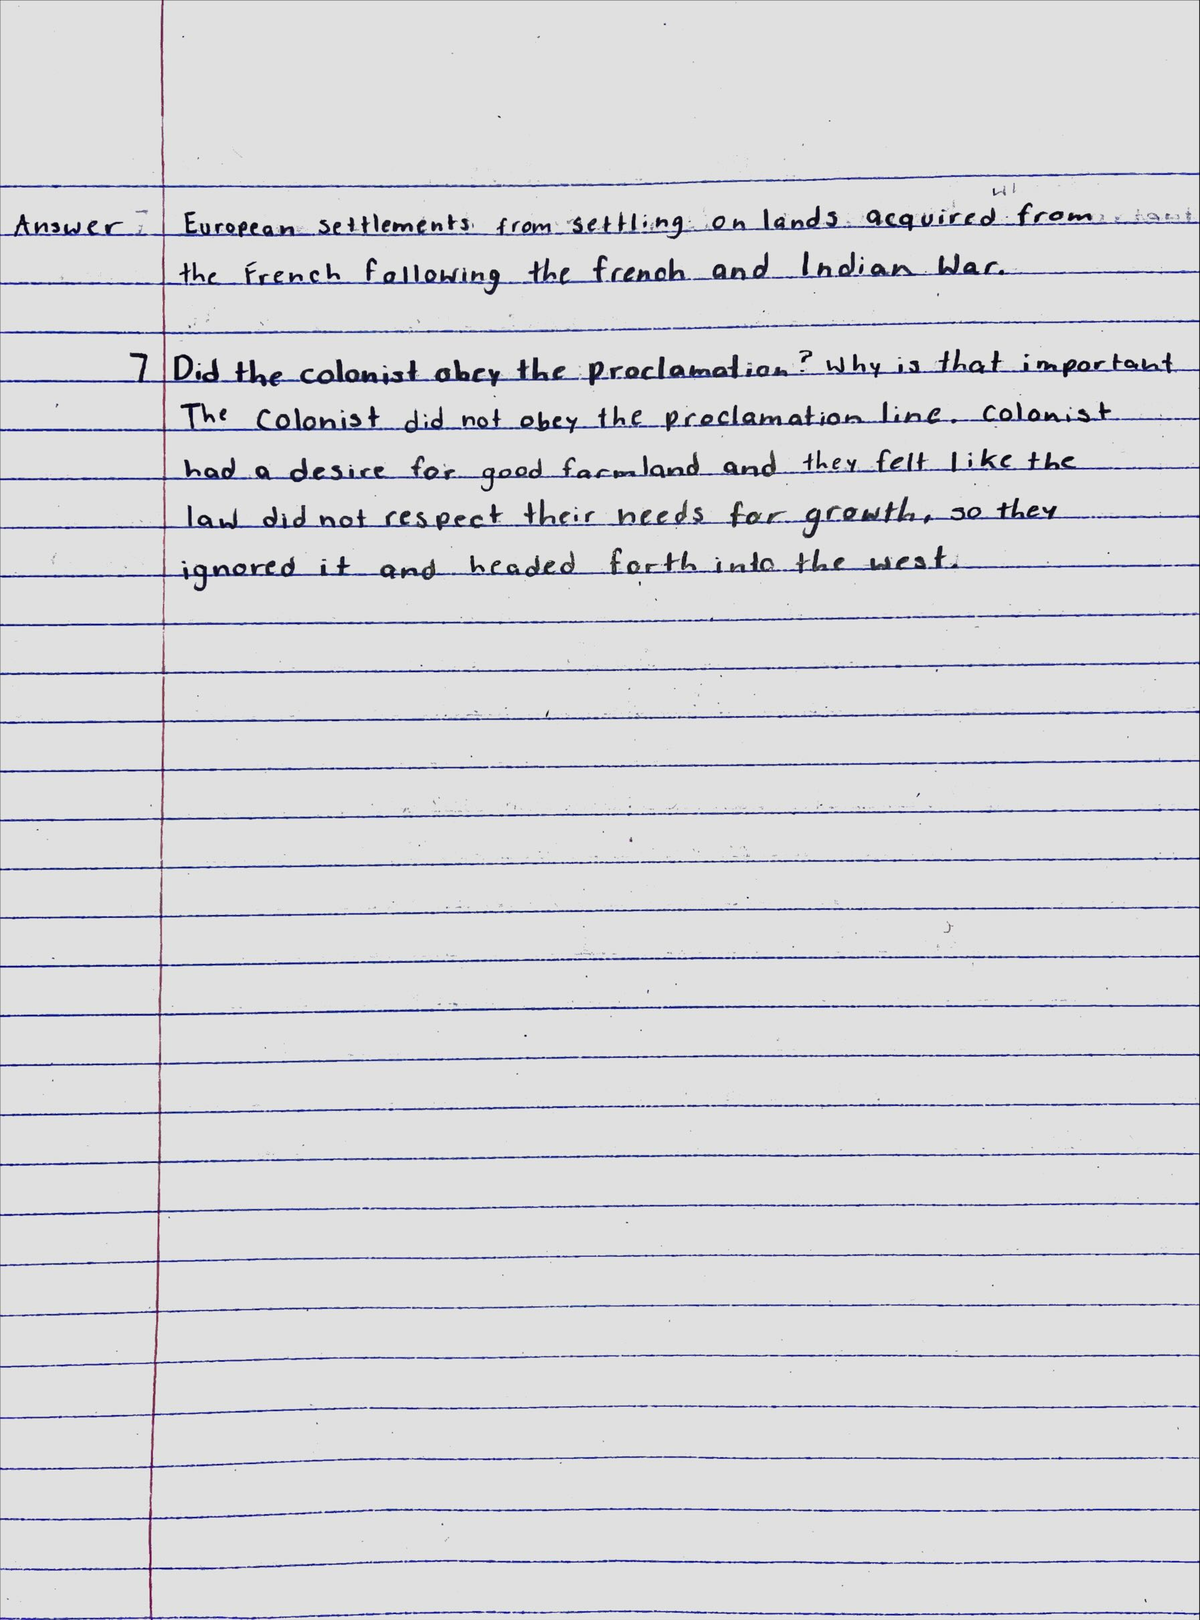 Answer: European settlements from settling on lands acquired from
the French following the french and Indian War.
7 Did the colonist obey the proclamation? Why is that important
The Colonist did not obey the proclamation line. Colonist
had a desire for good farmland and they felt like the
law did not respect their needs for growth, so they
ignored it and headed forth into the west.